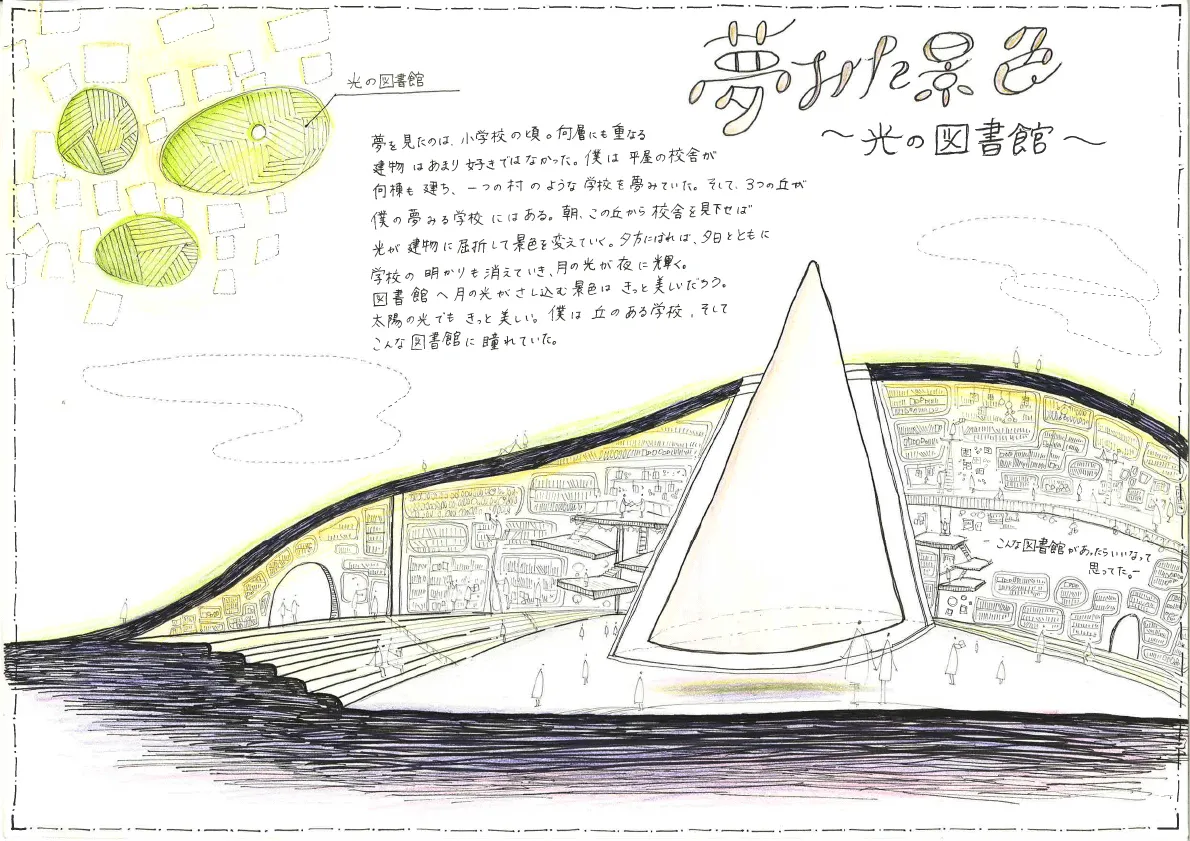 夢みた景色
～光の図書館～
光の図書館
夢を見たのは、小学校の頃。何層にも重なる
建物はあまり好きではなかった。僕は平屋の校舎が
何棟も建ち、一つの村のような学校を夢みていた。そして、3つの丘が
僕の夢みる学校にはある。朝、この丘から校舎を見下せば
光が建物に屈折して景色を変えていく。夕方になれば、夕日とともに
学校の明かりも消えていき、月の光が夜に輝く。
図書館へ月の光がさし込む景色はきっと美しいだろう。
太陽の光でもきっと美しい。僕は丘のある学校、そして
こんな図書館に瞳れていた。
- こんな図書館があったらいいなって
思ってた。-